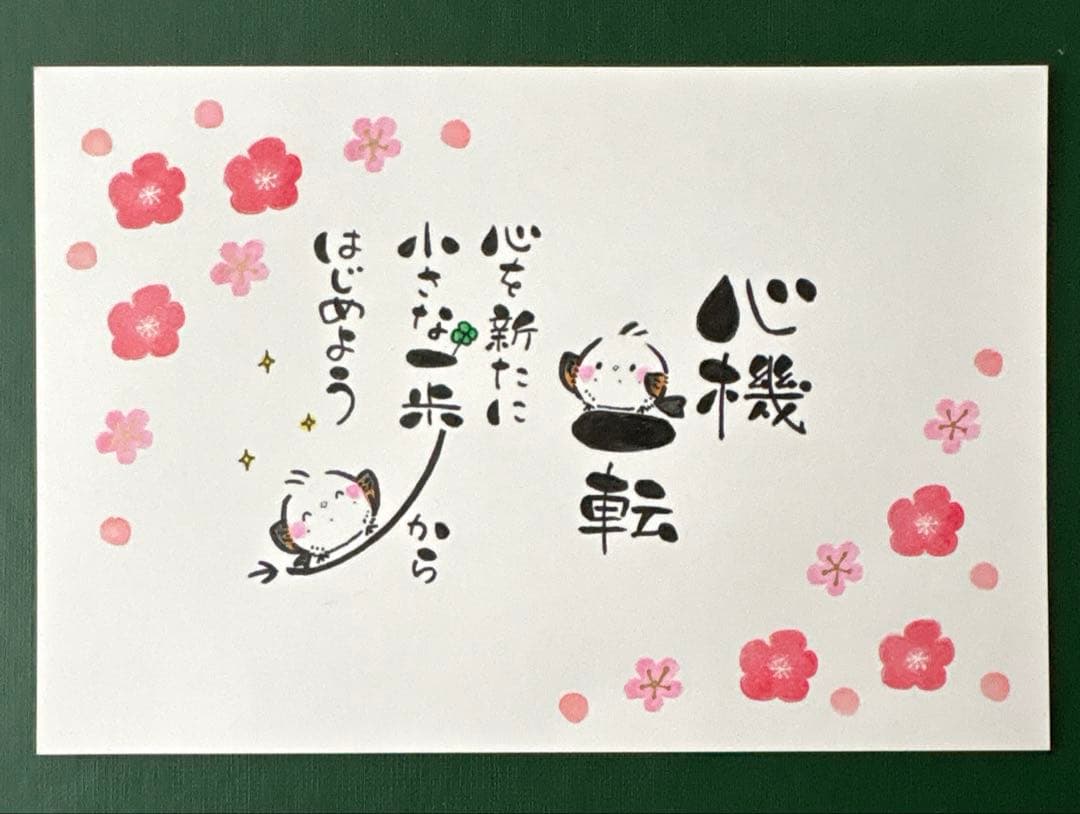 心機
一転
心を新たに
小さな一歩
から
はじめよう